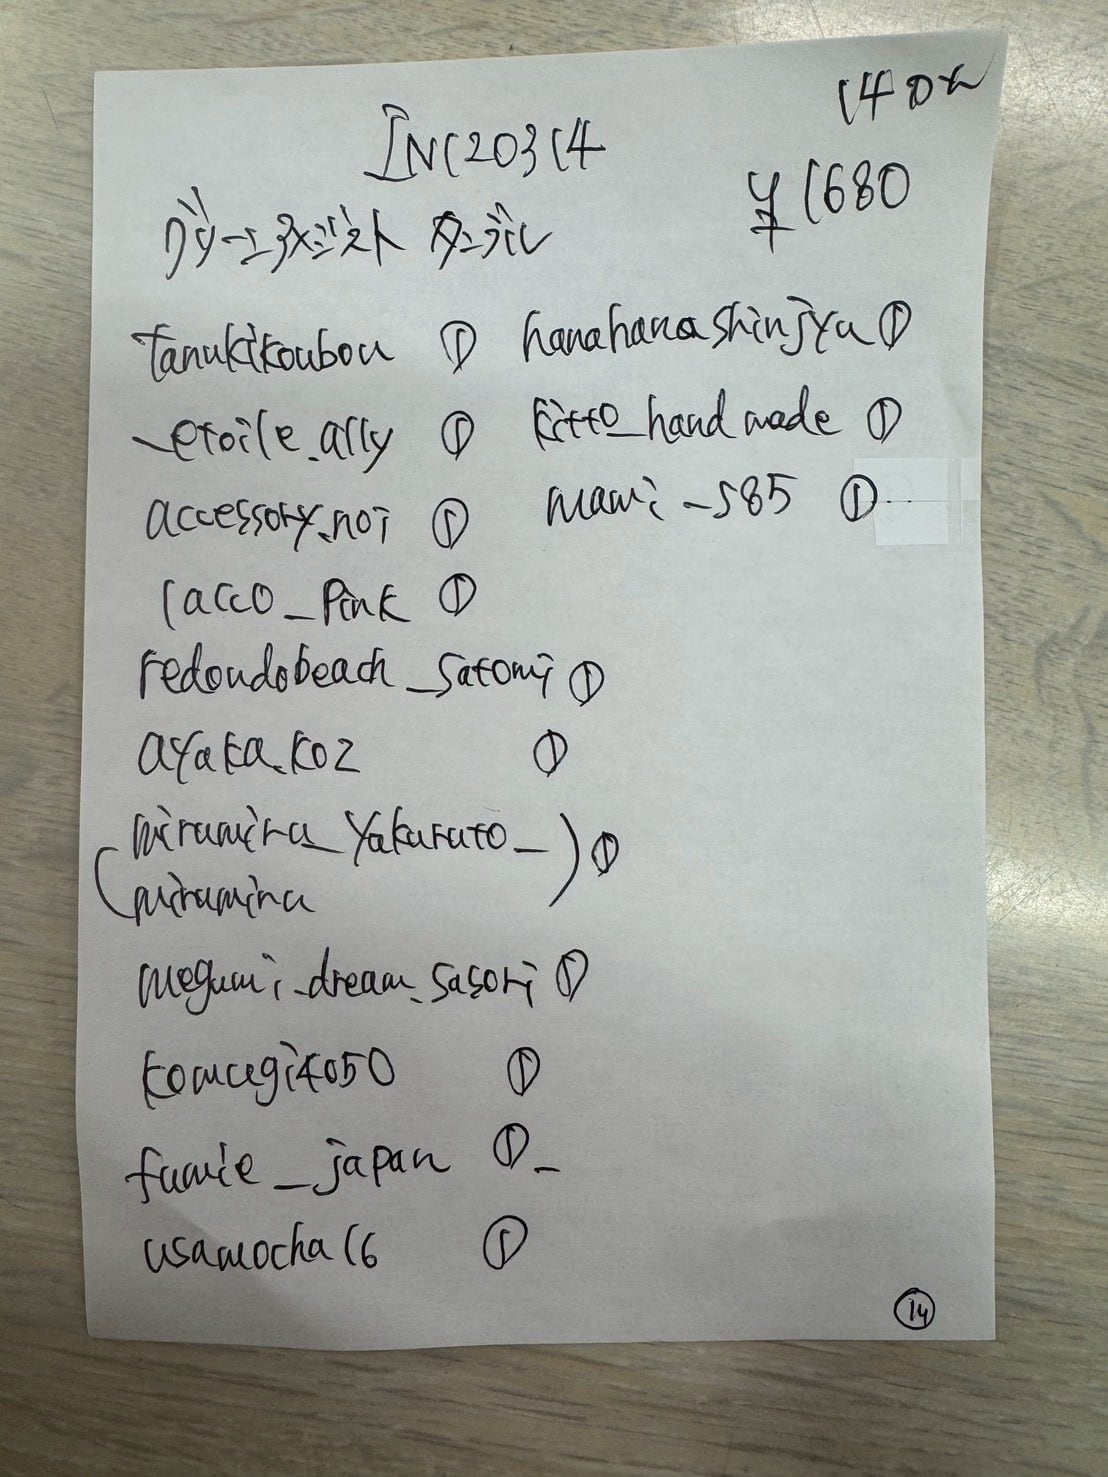 140コ
INC20314
¥1680
グリーンアメジスト タンブル
tanukikoubou ①
_etoile.ally ①
accessory.noi ①
lacco_pink ①
redondobeach_satomi ①
ayaka.koz ①
(miramira_yakurato_
miramira) ①
megumi.dream.sasori ①
komugi4050 ①
fumie_japan ①_
usamocha16 ①
hanahanashinjyu ①
kitto_handmade ①
mami_585 ①
⑭